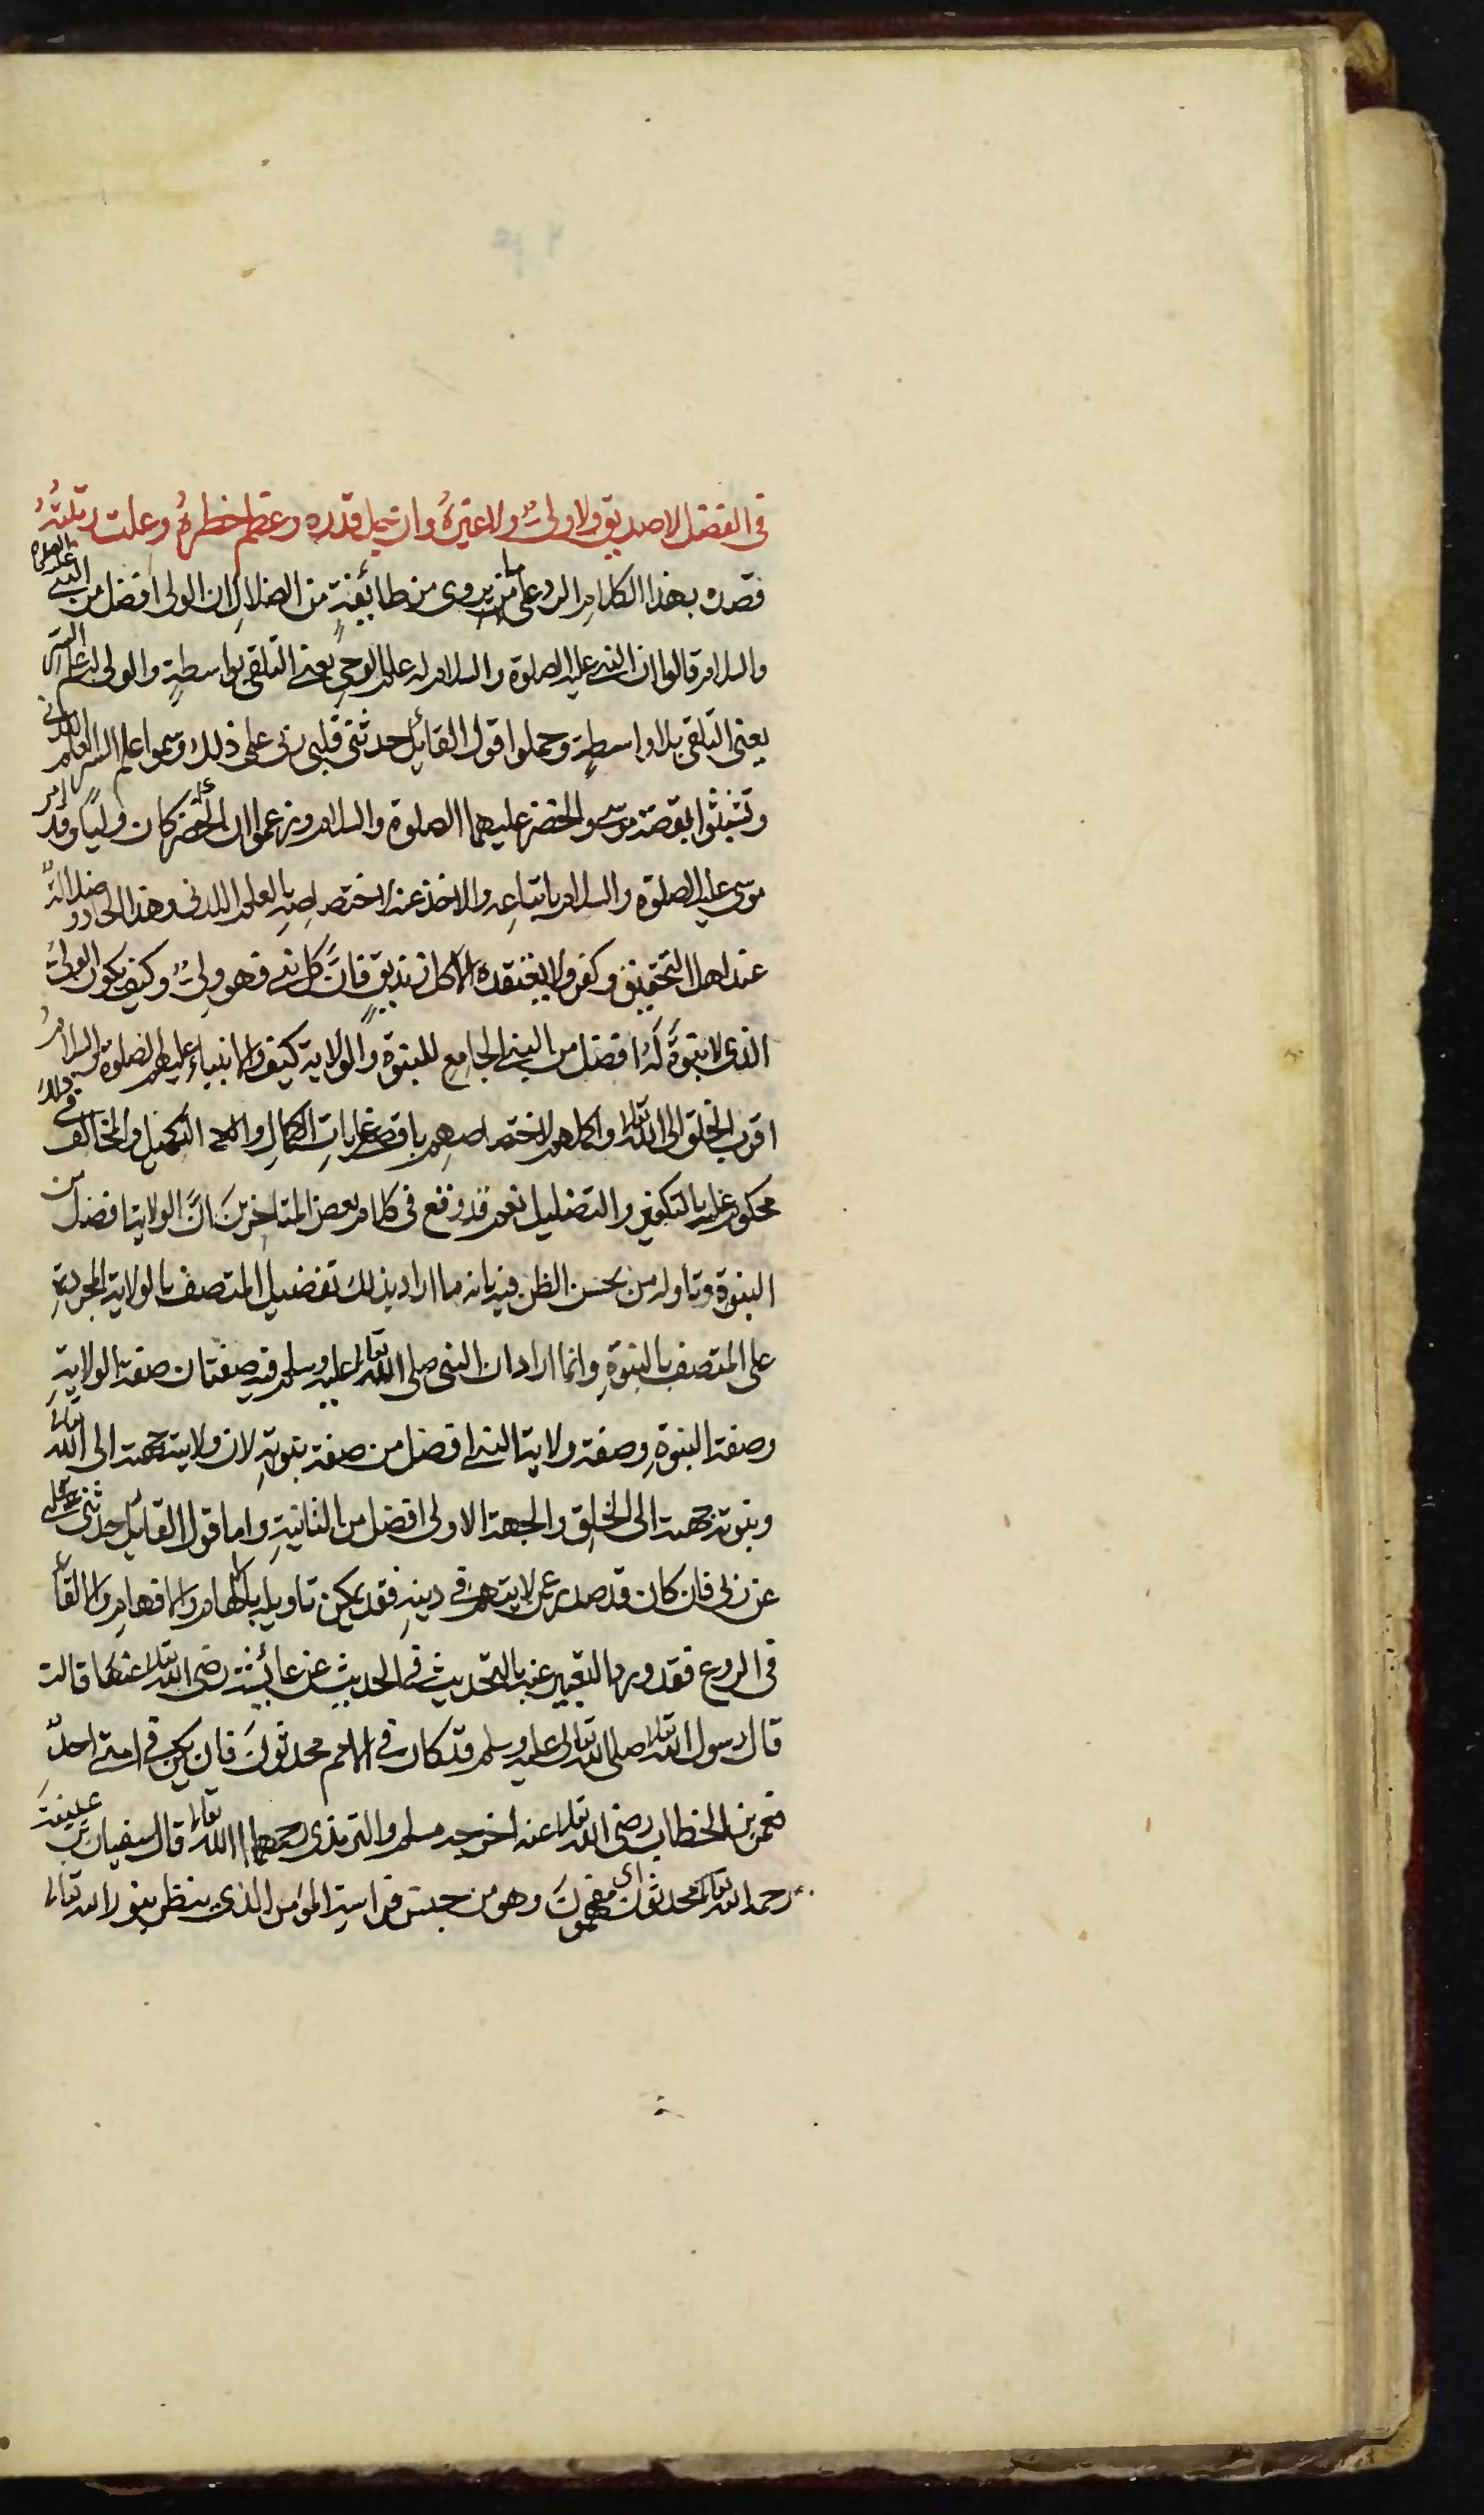 في الفضل لا صديق ولا ولي ولا غيره وان جل قدره وعظم خطره وعلت رتبته
قصده بهذا الكلام الرد على ما يروى من طائفة من الضلال ان الولى افضل من النبي عليه الصلوة
والسلام قالوا ان النبي عليه الصلوة والسلام له علم الوحي يعني التلقي بواسطة والولي له علم السر
يعني التلقي بلا واسطة وحملوا قول القائل حدثني قلبي ربي على ذلك وسموا علم السر العلم اللدني
وتشبثوا بقصة موسى والخضر عليهما الصلوة والسلام وزعموا ان الخضر كان وليًا وقد امر
موسى عليه الصلوة والسلام باتباعه والاخذ عنه لاختصاصه بالعلم اللدني وهذا الحاد وضلالة
عند اهل التحقيق وكفر ولا يعتقده الا كل زنديق فان كل نبي فهو ولي وكيف يكون الولي
الذي لا نبوة له افضل من النبي الجامع للنبوة والولاية كيف والانبياء عليهم الصلوة والسلام
اقرب الخلق الى الله تعالى واكملهم لاختصاصهم باقصى غايات الكمال والتكميل والمخالف في ذلك
محكوم عليه بالتكفير والتضليل نعم قد وقع في كلام بعض المتاخرين ان الولاية افضل من
النبوة وتاوله من يحسن الظن فيه بانه ما اراد بذلك تفضيل المتصف بالولاية المجردة
على المتصف بالنبوة وانما اراد ان النبي صلى الله تعالى عليه وسلم فيه صفتان صفة الولاية
وصفة النبوة وصفة ولاية النبي افضل من صفة نبوته لان ولايته جهته الى الله تعالى
ونبوته جهته الى الخلق والجهة الاولى افضل من الثانية واما قول القائل حدثني قلبي
عن ربي فان كان قد صدر عن لا يتهم في دينه فقد يمكن تاويله بالالهام والافهام والالقاء
في الروع فقد ورد التعبير عنه بالتحديث في الحديث عن عائشة رضى الله تعالى عنها قالت
قال رسول الله تعالى صلى الله تعالى عليه وسلم قد كان في الامم محدثون فان يكن في امتي احد
فعمر بن الخطاب رضى الله تعالى عنه اخرجه مسلم والترمذي رحمهما الله تعالى قال سفيان بن عيينة
رحمه الله تعالى محدثون اى مفهمون وهو من جنس فراسة المؤمن الذي ينظر بنور الله تعالى